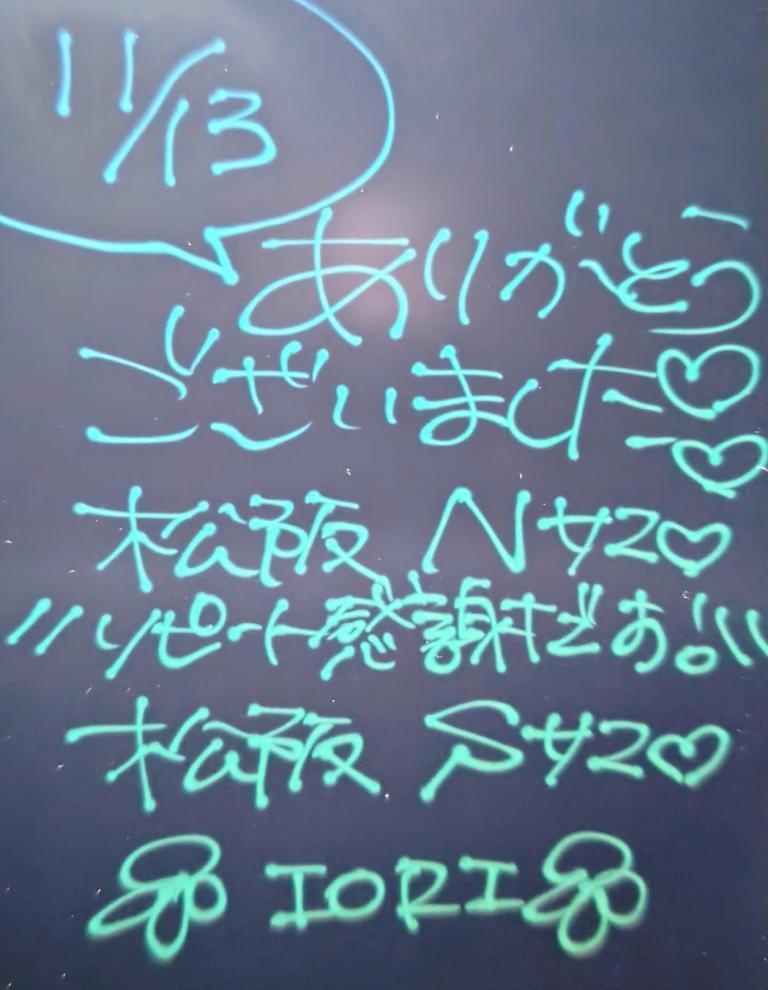 11/13
ありがとう
ございました♡♡
松阪 Nサマ♡
\\リピート感謝だぁ!//
松阪 Sサマ♡
IORI